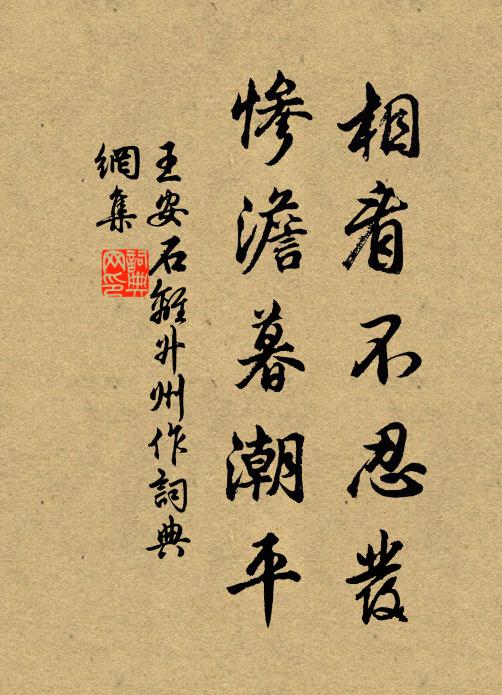 相看不忍發
慘澹暮潮平
王安石離升州作詞典
網集
詞典網印